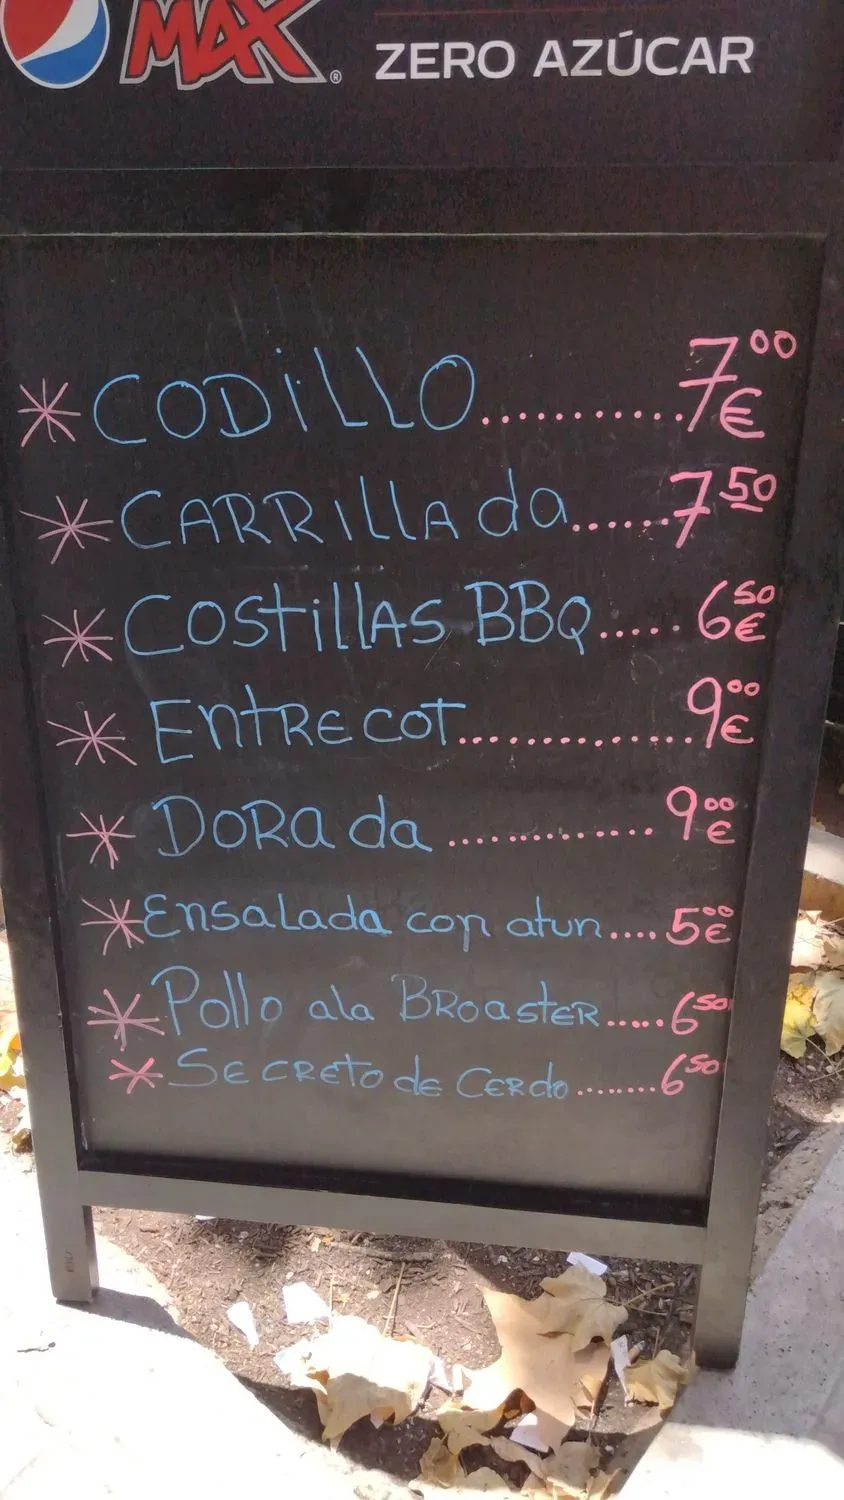 MAX® ZERO AZÚCAR
* CODiLLO........... 7⁰⁰ €
* CARRILLAda...... 7⁵⁰
* COStillAS BBQ..... 6⁵⁰ €
* EntRECOT............ 9⁰⁰ €
* DORAda ............. 9⁰⁰ €
* EnsaLada con atun.... 5⁰⁰ €
* Pollo ala BROastER..... 6⁵⁰
* SECREto de CERdo........ 6⁵⁰